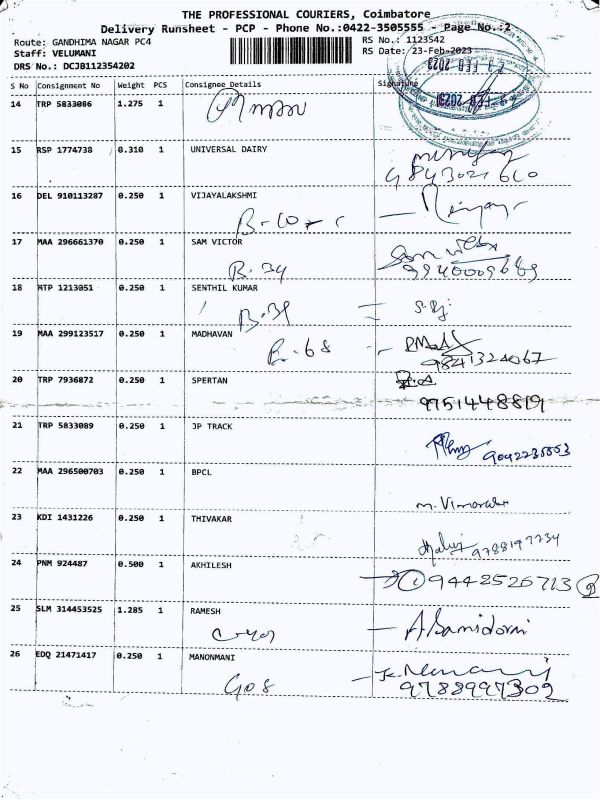 THE PROFESSIONAL COURIERS, Coimbatore
Delivery Runsheet - PCP - Phone No.:0422-3505555 - Page No.:2
Route: GANDHIMA NAGAR PC4
Staff: VELUMANI
DRS No.: DCJB112354202
RS No.: 1123542
RS Date: 23-Feb-2023
S No Consignment No Weight PCS Consignee Details Signature
14 TRP 5833086 1.275 1
15 RSP 1774738 0.310 1 UNIVERSAL DAIRY
9843021610
16 DEL 910113287 0.250 1 VIJAYALAKSHMI
17 MAA 296661370 0.250 1 SAM VICTOR
B-34 9940009689
18 MTP 1213051 0.250 1 SENTHIL KUMAR
B-39
19 MAA 299123517 0.250 1 MADHAVAN
B-68 9841324067
20 TRP 7936872 0.250 1 SPERTAN
9751448819
21 TRP 5833089 0.250 1 JP TRACK
9042235553
22 MAA 296500703 0.250 1 BPCL
23 KDI 1431226 0.250 1 THIVAKAR
9788197734
24 PNM 924487 0.500 1 AKHILESH
9442526713
25 SLM 314453525 1.285 1 RAMESH
26 EDQ 21471417 0.250 1 MANONMANI
G08 9788997309